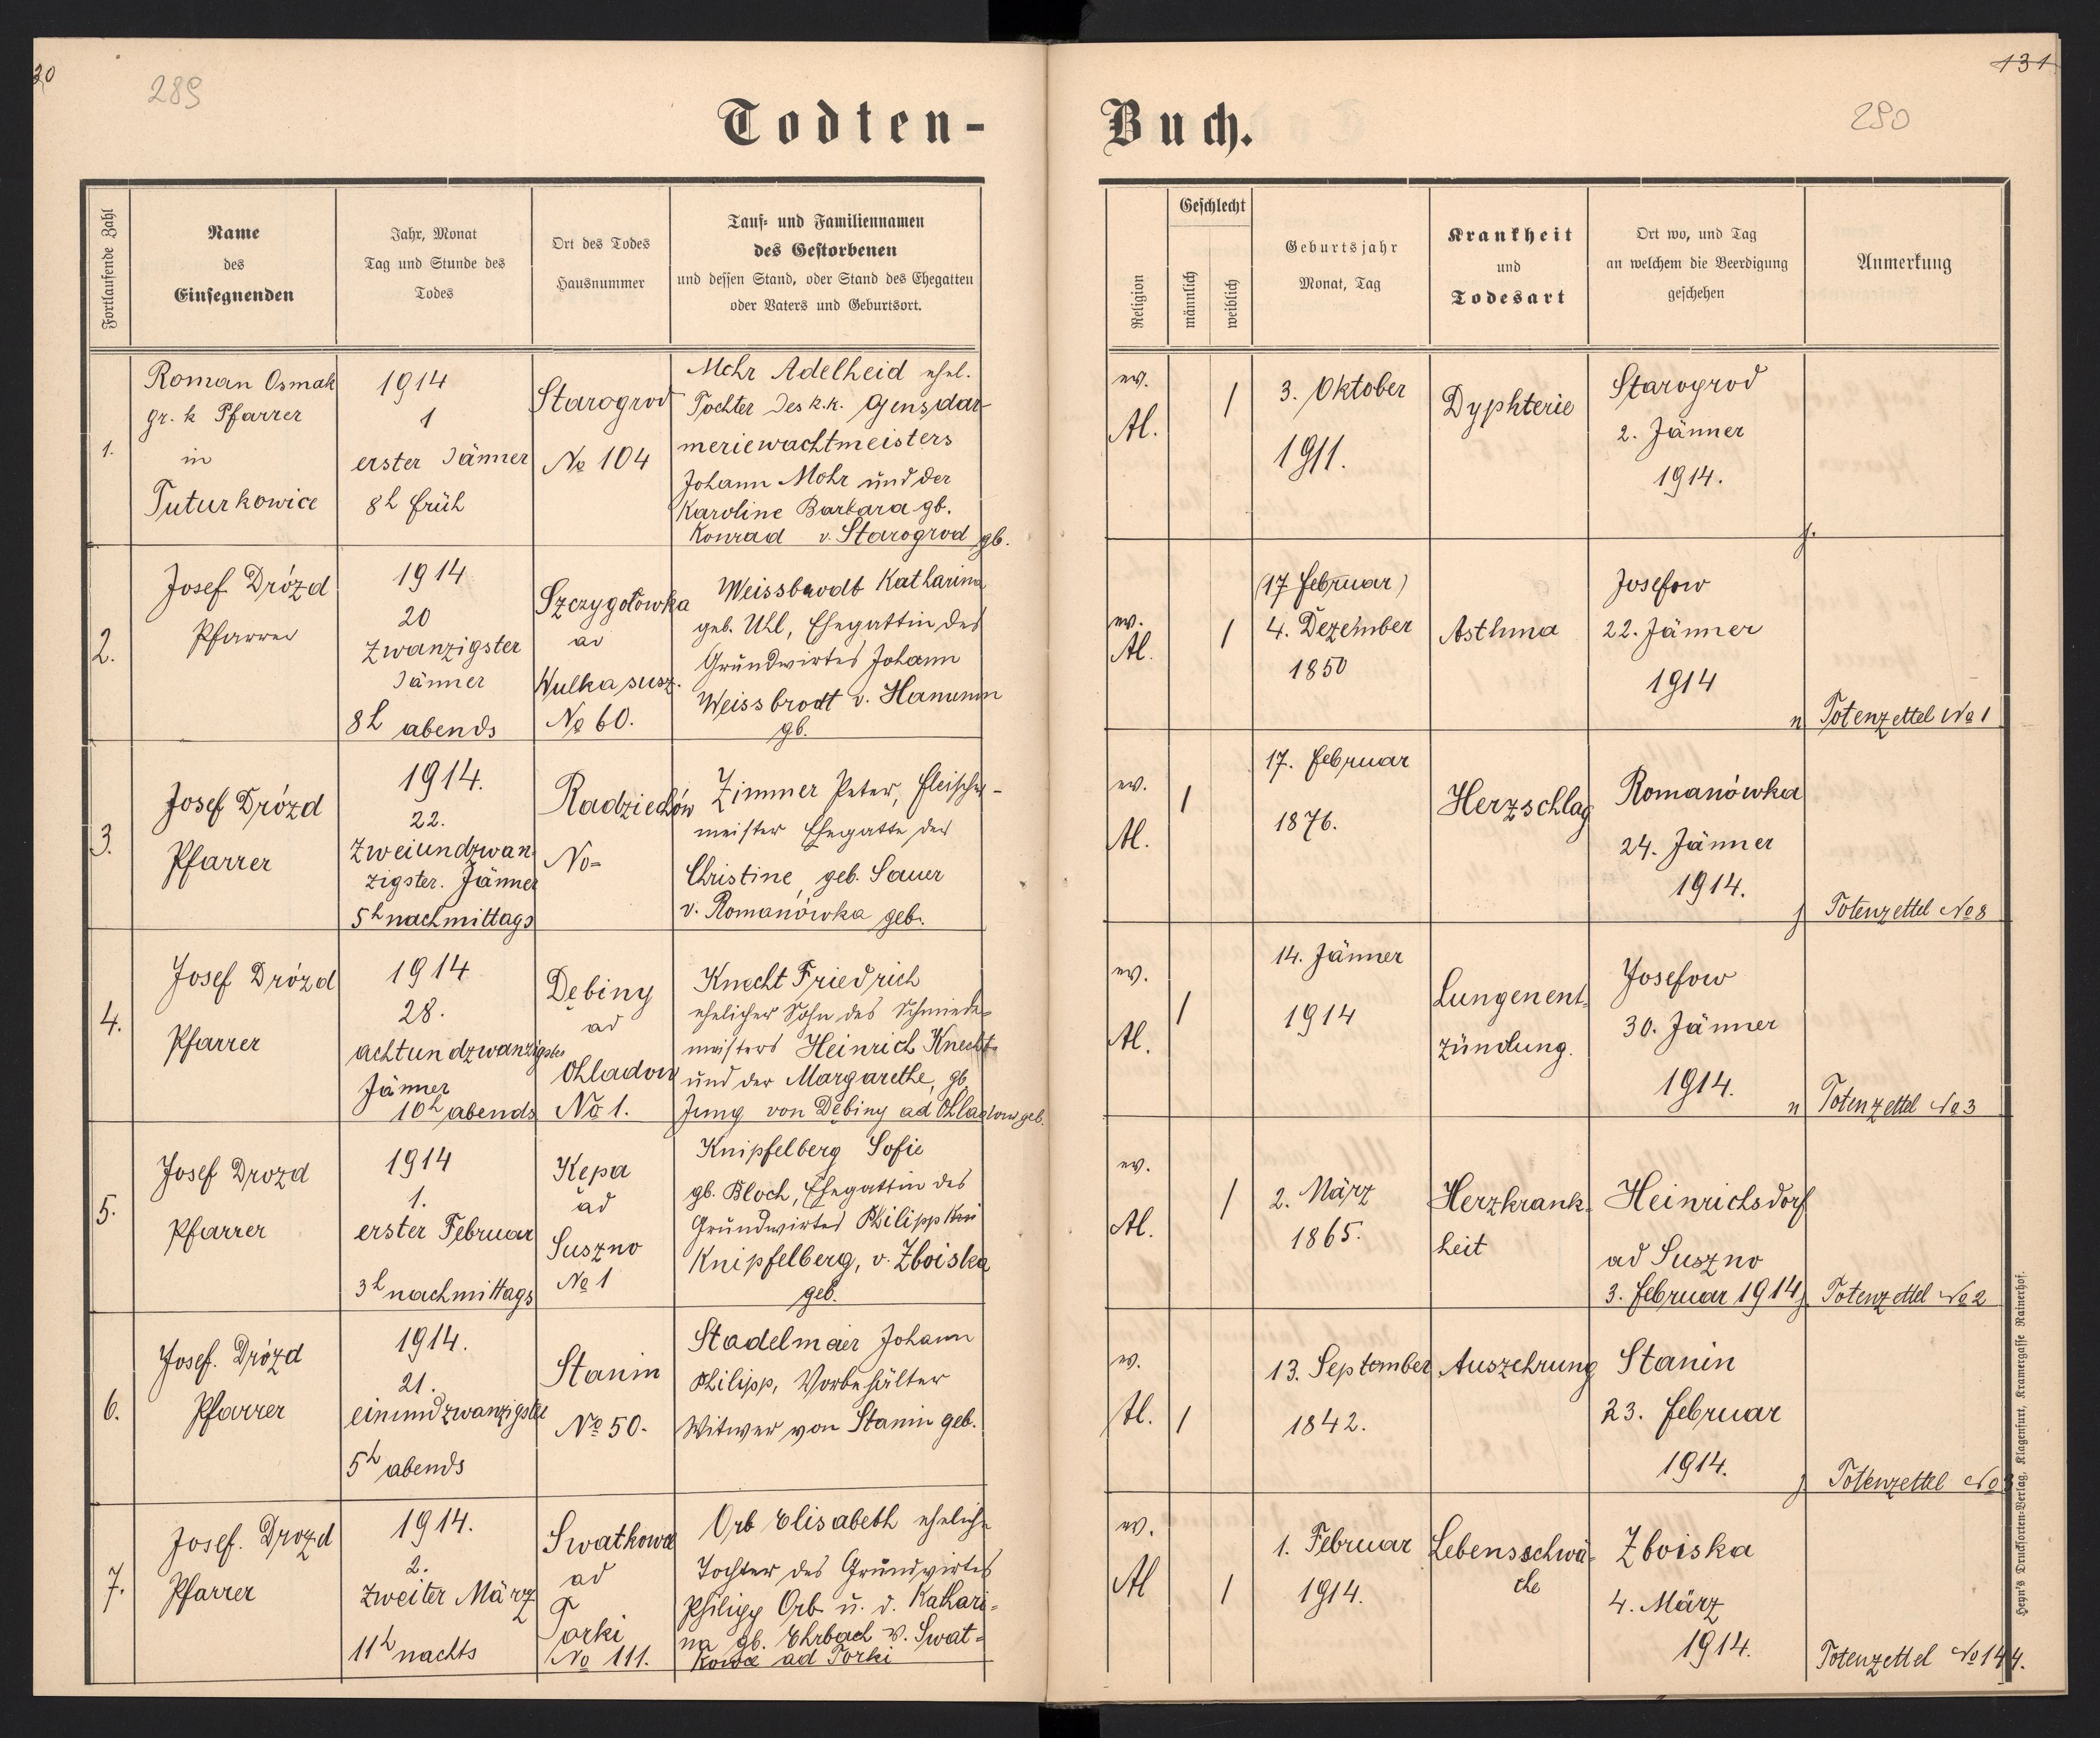 30
289
Todten-
Fortlaufende Zahl
Name
des
Einsegnenden
Jahr, Monat
Tag und Stunde des
Todes
Ort des Todes
Hausnummer
Tauf- und Familiennamen
des Gestorbenen
und dessen Stand, oder Stand des Ehegatten
oder Vaters und Geburtsort.
1.
Roman Osmak
gr. k Pfarrer
in
Tuturkowice
1914
1
erster Jänner
8h früh
Starogrod
No 104
Mohr Adelheid ehel.
Tochter des k.k. Gensdar-
meriewachtmeisters
Johann Mohr und der
Karoline Barbara gb.
Konrad v. Starogrod gb.
2.
Josef Drózd
Pfarrer
1914
20
zwanzigster
Jänner
8h abends
Szczygołowka
ad
Wulka susz.
No 60.
Weissbrodt Katharina
geb. Uhl, Ehegattin des
Grundwirtes Johann
Weissbrodt v. Hanunin
gb.
3.
Josef Drózd
Pfarrer
1914.
22.
zweiundzwan-
zigster. Jänner
5h nachmittags
Radziechów
No-
Zimmer Peter, Fleischer-
meister Ehegatte der
Christine, geb. Sauer
v. Romanówka geb.
4.
Josef Drózd
Pfarrer
1914
28.
achtundzwanzigster
Jänner
10h abends
Dębiny
ad
Ohladow
No 1.
Knecht Friedrich
ehelicher Sohn des Schmiede-
meisters Heinrich Knecht
und der Margarethe, gb.
Jung von Dębiny ad Ohladow geb.
5.
Josef Drozd
Pfarrer
1914
1.
erster Februar
3h nachmittags
Kępa
ad
Suszno
No 1
Knipfelberg Sofie
gb. Bloch, Ehegattin des
Grundwirtes Philipp
Knipfelberg, v. Zboiska
geb.
6.
Josef. Drózd
Pfarrer
1914.
21.
einundzwanzigster
5h abends
Stanin
No 50.
Stadelmaier Johann
Philipp, Vorbehälter
Witwer von Stanin geb.
7.
Josef. Drozd
Pfarrer
1914.
2.
zweiter März
11h nachts
Swatkowce
ad
Torki
No 111.
Orb Elisabeth eheliche
Tochter des Grundwirtes
Philipp Orb u. d. Kathari-
na gb. Ehrbach v. Swat-
kowce ad Torki
131
290
Buch.
Religion
Geschlecht
männlich
weiblich
Geburtsjahr
Monat, Tag
Krankheit
und
Todesart
Ort wo, und Tag
an welchem die Beerdigung
geschehen
Anmerkung
ev.
Al.
1
3. Oktober
1911.
Dyphterie
Starogrod
2. Jänner
1914.
j.
ev.
Al.
1
(17 Februar)
4. Dezember
1850
Asthma
Josefow
22. Jänner
1914
n
Totenzettel No 1
ev.
Al.
1
17. Februar
1876.
Herzschlag
Romanówka
24. Jänner
1914.
j
Totenzettel No 8
ev.
Al.
1
14. Jänner
1914
Lungenent-
zündung.
Josefow
30. Jänner
1914.
n
Totenzettel No 3
ev.
Al.
1
2. März
1865.
Herzkrank-
heit
Heinrichsdorf
ad Suszno
3. Februar 1914
j.
Totenzettel No 2
ev.
Al.
1
13. September
1842.
Auszehrung
Stanin
23. Februar
1914.
j
Totenzettel No 3
ev.
Al
1
1. Februar
1914.
Lebensschwä-
che
Zboiska
4. März
1914.
Totenzettel No 144.
Heyn's Drucksorten-Verlag, Klagenfurt, Kramergasse Rainerhof.